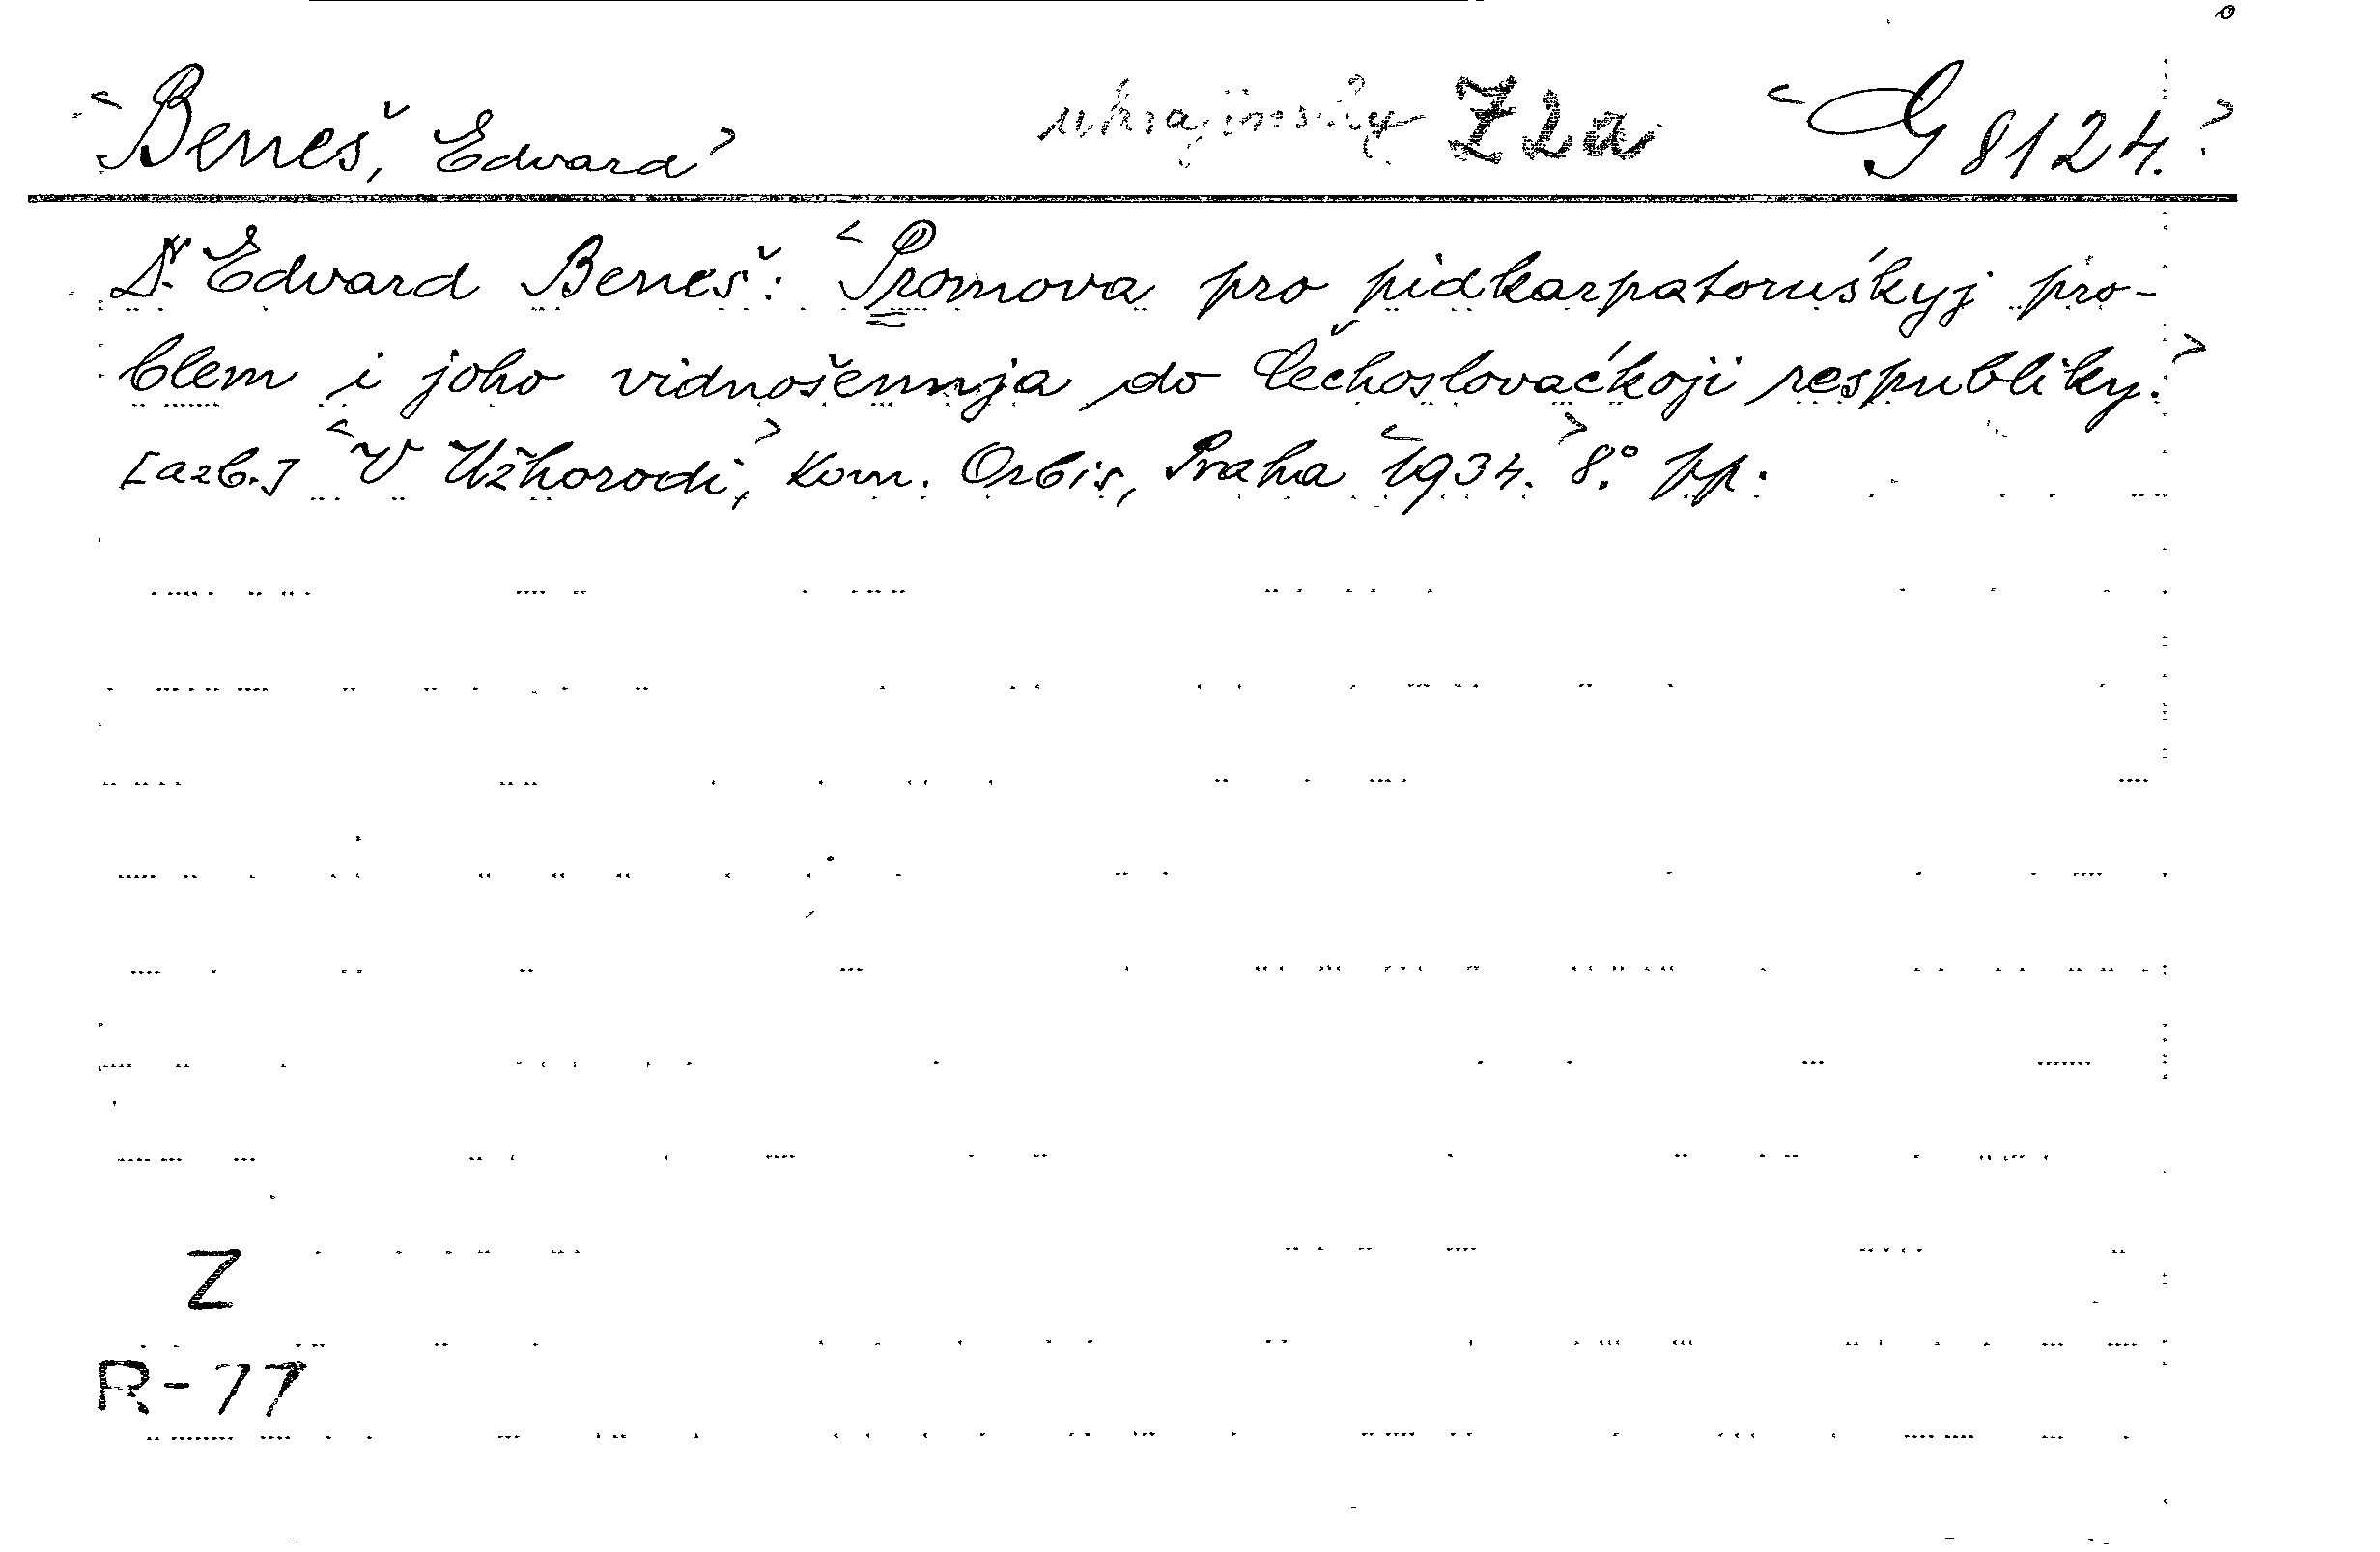 <Beneš, Edvard> ukrajinsky Z2a <G 8124.>
Dr Edvard Beneš: <Promova pro pidkarpatoruśkyj pro-
blem i joho vidnošennja do Čechoslovaćkoji respubliky.>
[azb.] <V Užhorodi,> Kom. Orbis, Praha <1934.> 8.° pp.
Z
R-77